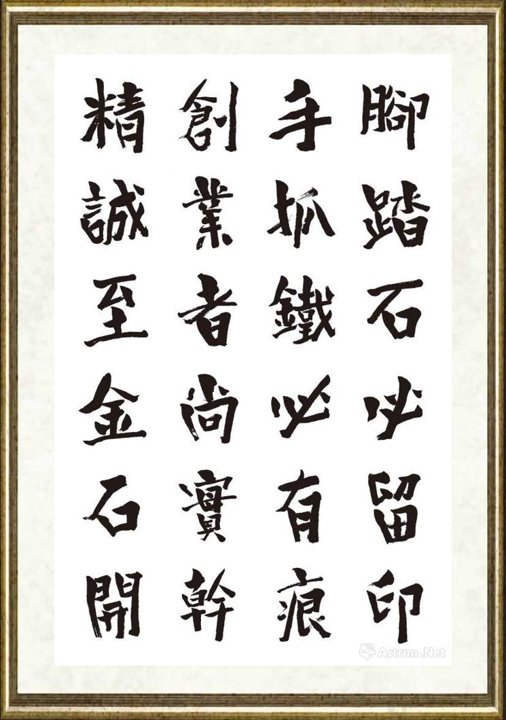 腳踏石必留印
手抓鐵必有痕
創業者尚實幹
精誠至金石開
Artron.Net